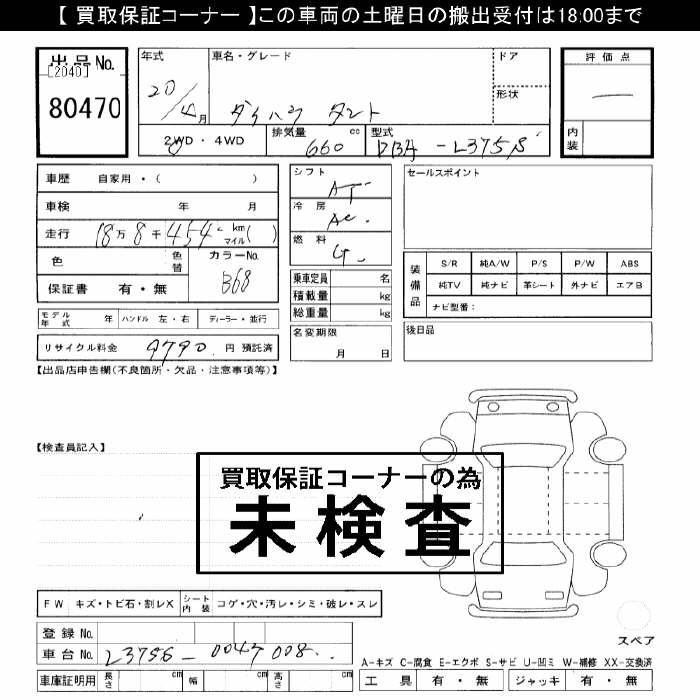 【 買取保証コーナー 】この車両の土曜日の搬出受付は18:00まで
出品No.
[2040]
80470
年式
20/4月
車名・グレード
ダイハツ タント
ドア
形状
2WD・4WD
排気量
660 cc
型式
DBA-L375S
評価点
内装
車歴 自家用・( )
車検 年 月
走行 18万8千454 km マイル( )
色
色替
カラーNo.
B68
保証書 有・無
シフト
AT
冷房
AC
燃料
G
乗車定員 名
積載量 kg
総重量 kg
名変期限
月 日
セールスポイント
装備品
S/R 純A/W P/S P/W ABS
純TV 純ナビ 革シート 外ナビ エアB
ナビ型番:
後日品
モデル年式 年 ハンドル 左・右 ディーラー・並行
リサイクル料金 9790 円 預託済
【出品店申告欄(不良箇所・欠品・注意事項等)】
【検査員記入】
買取保証コーナーの為
未検査
FW キズ・トビ石・割レX
シート内装 コゲ・穴・汚レ・シミ・破レ・スレ
登録 No.
車台 No. L375S-0047008
車庫証明用 長さ cm 幅 cm 高さ cm
スペア
A-キズ C-腐食 E-エクボ S-サビ U-凹ミ W-補修 XX-交換済
工具 有・無 ジャッキ 有・無